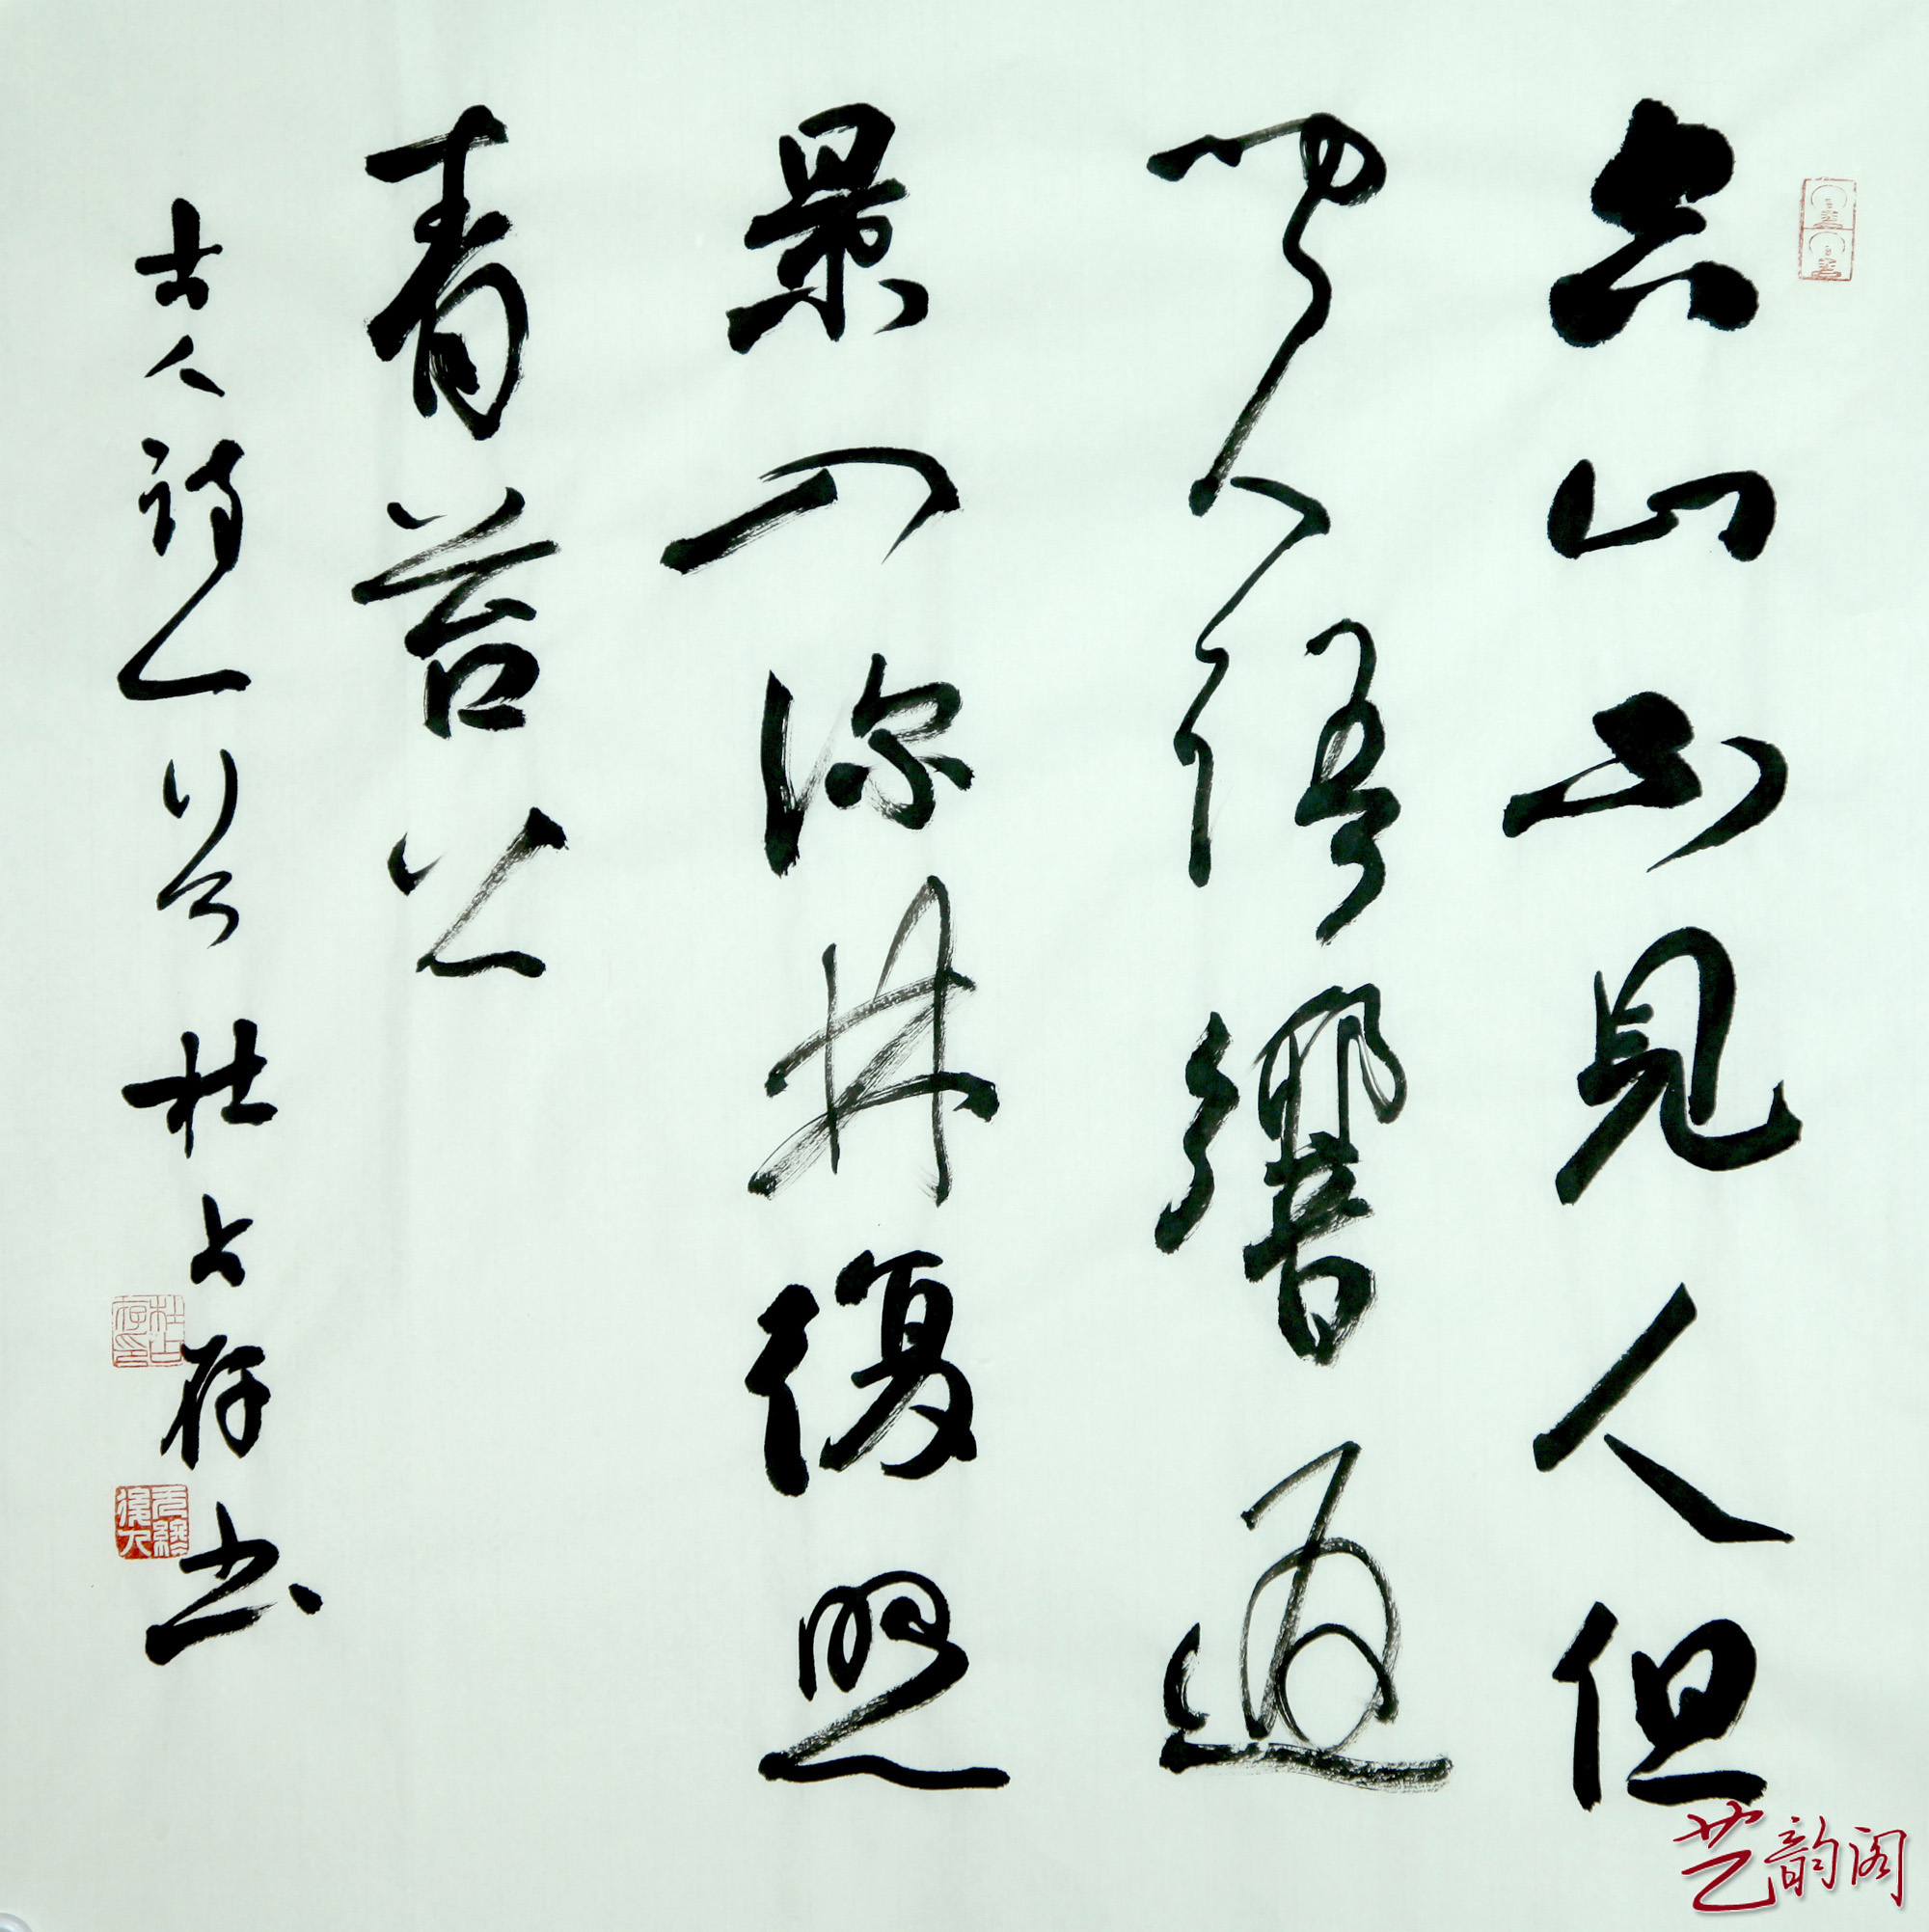 空山不見人但
聞人语響返
景入深林復照
青苔上
古人詩一首 杜占存书
杜占存印
艺韵阁